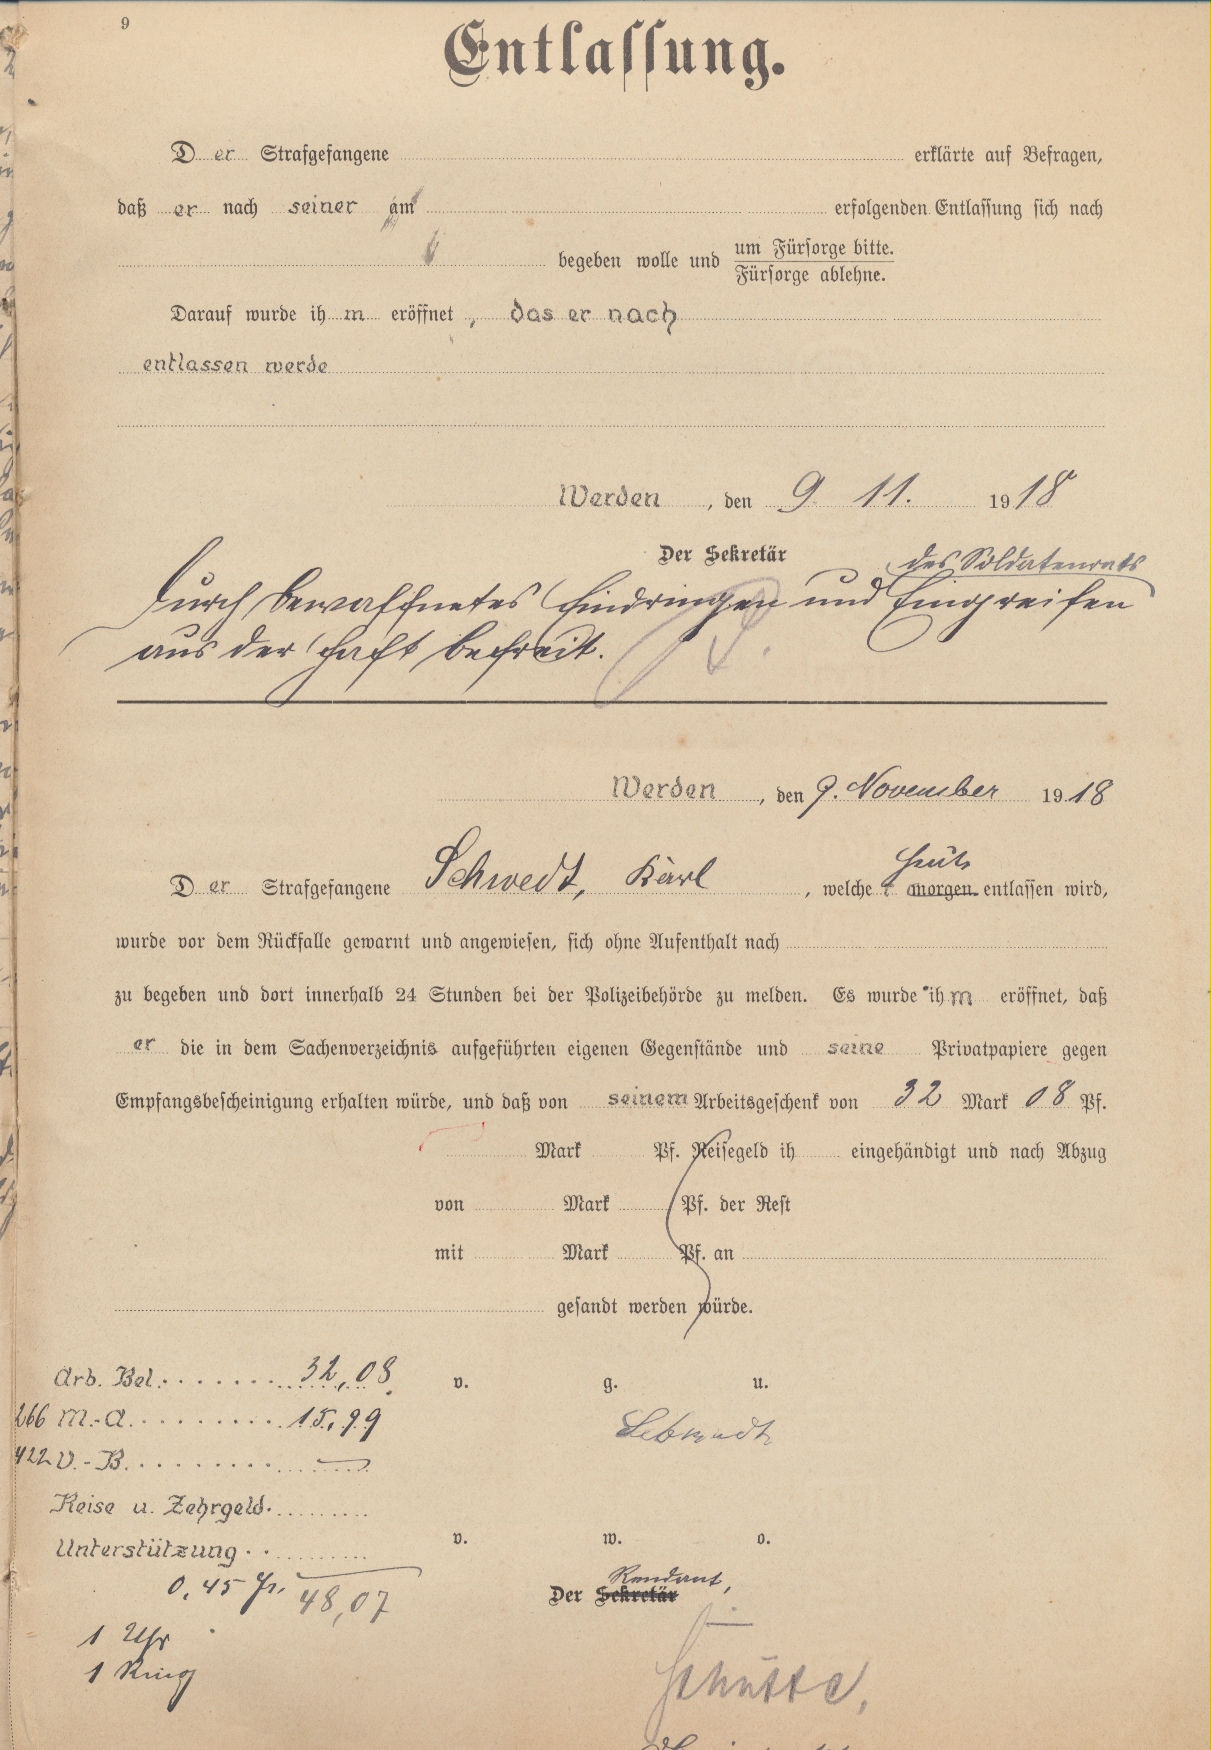 9
Entlassung.
Der Strafgefangene erklärte auf Befragen,
daß er nach seiner am erfolgenden Entlassung sich nach
begeben wolle und um Fürsorge bitte.
Fürsorge ablehne.
Darauf wurde ihm eröffnet, das er nach
entlassen werde
Werden, den 9. 11. 1918
Der Sekretär
des Soldatenrats
Durch bewaffnetes Eindringen und Eingreifen
aus der Haft befreit.
Werden, den 9. November 1918
heute
Der Strafgefangene Schwedt, Karl, welche r morgen entlassen wird,
wurde vor dem Rückfalle gewarnt und angewiesen, sich ohne Aufenthalt nach
zu begeben und dort innerhalb 24 Stunden bei der Polizeibehörde zu melden. Es wurde ihm eröffnet, daß
er die in dem Sachenverzeichnis aufgeführten eigenen Gegenstände und seine Privatpapiere gegen
Empfangsbescheinigung erhalten würde, und daß von seinem Arbeitsgeschenk von 32 Mark 08 Pf.
Mark Pf. Reisegeld ih eingehändigt und nach Abzug
von Mark Pf. der Rest
mit Mark Pf. an
gesandt werden würde.
Arb. Bel. 32,08
v. g. u.
266 M.-A. 15,99
422 V.-B. —
Reise u. Zehrgeld.
Unterstützung
v. w. o.
0,45 Fr. 48,07
Rendant,
Der Sekretär
1 Uhr
1 Ring
Schütte,